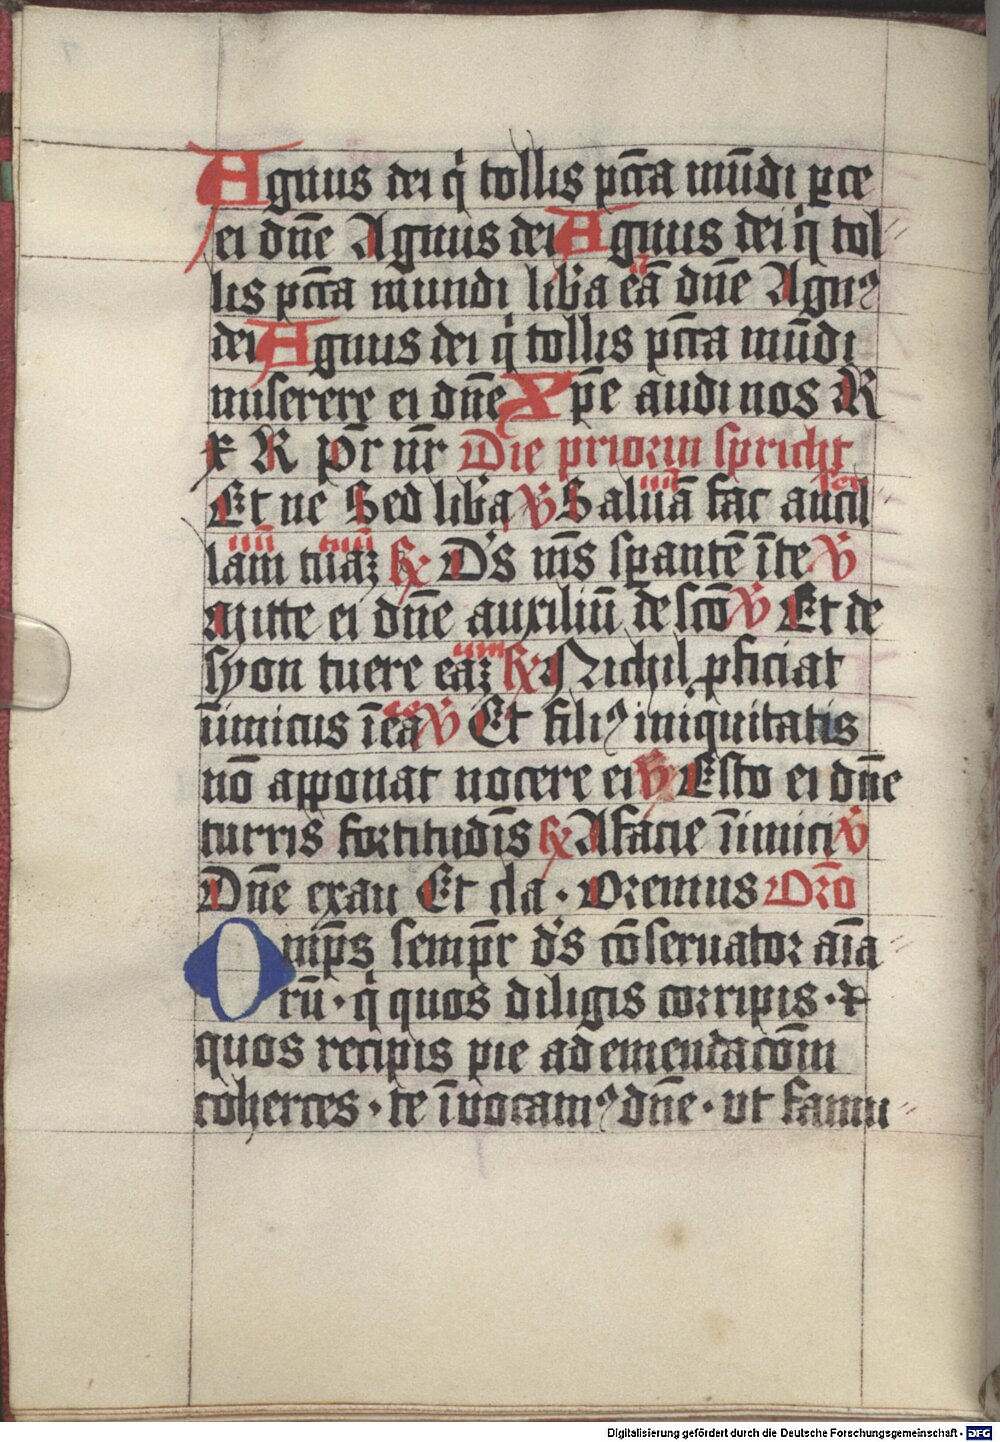 Agnus dei q̇ tollis pcc̄a mūdi ꝑce
ei dn̄e Agnus dei Agnus dei q̇ tol
lis pcc̄a mundi lib̓a eā dn̄e Agnꝰ
dei Agnus dei q̇ tollis pcc̄a mūdi
miserere ei dn̄e Xp̄e audi nos R
x R pr̄ nr̄ Die priorin spricht
Et ne Sed lib̓a ℣ Saluā fac ancil
lam tuaꝫ ℟ D̓s m̄s sꝑantē ī te ℣
Mitte ei dn̄e auxiliū de scō ℣ Et de
syon tuere eaꝫ ℟ Nichil ꝓficiat
īnimicus ī ea ℣ Et filiꝰ iniquitatis
nō apponat nocere ei ℣ Esto ei dn̄e
turris fortitudīs ℟ A facie īnimici ℣
Dn̄e exau Et cla · Oremus Orō
Omp̄s semp̄r d̓s cōseruator aīa
rū · q̇ quos diligis corripis · ⁊
quos recipis pie ad emendacōm
coherces · te īuocamꝰ dn̄e · ut famu
Digitalisierung gefördert durch die Deutsche Forschungsgemeinschaft - DFG